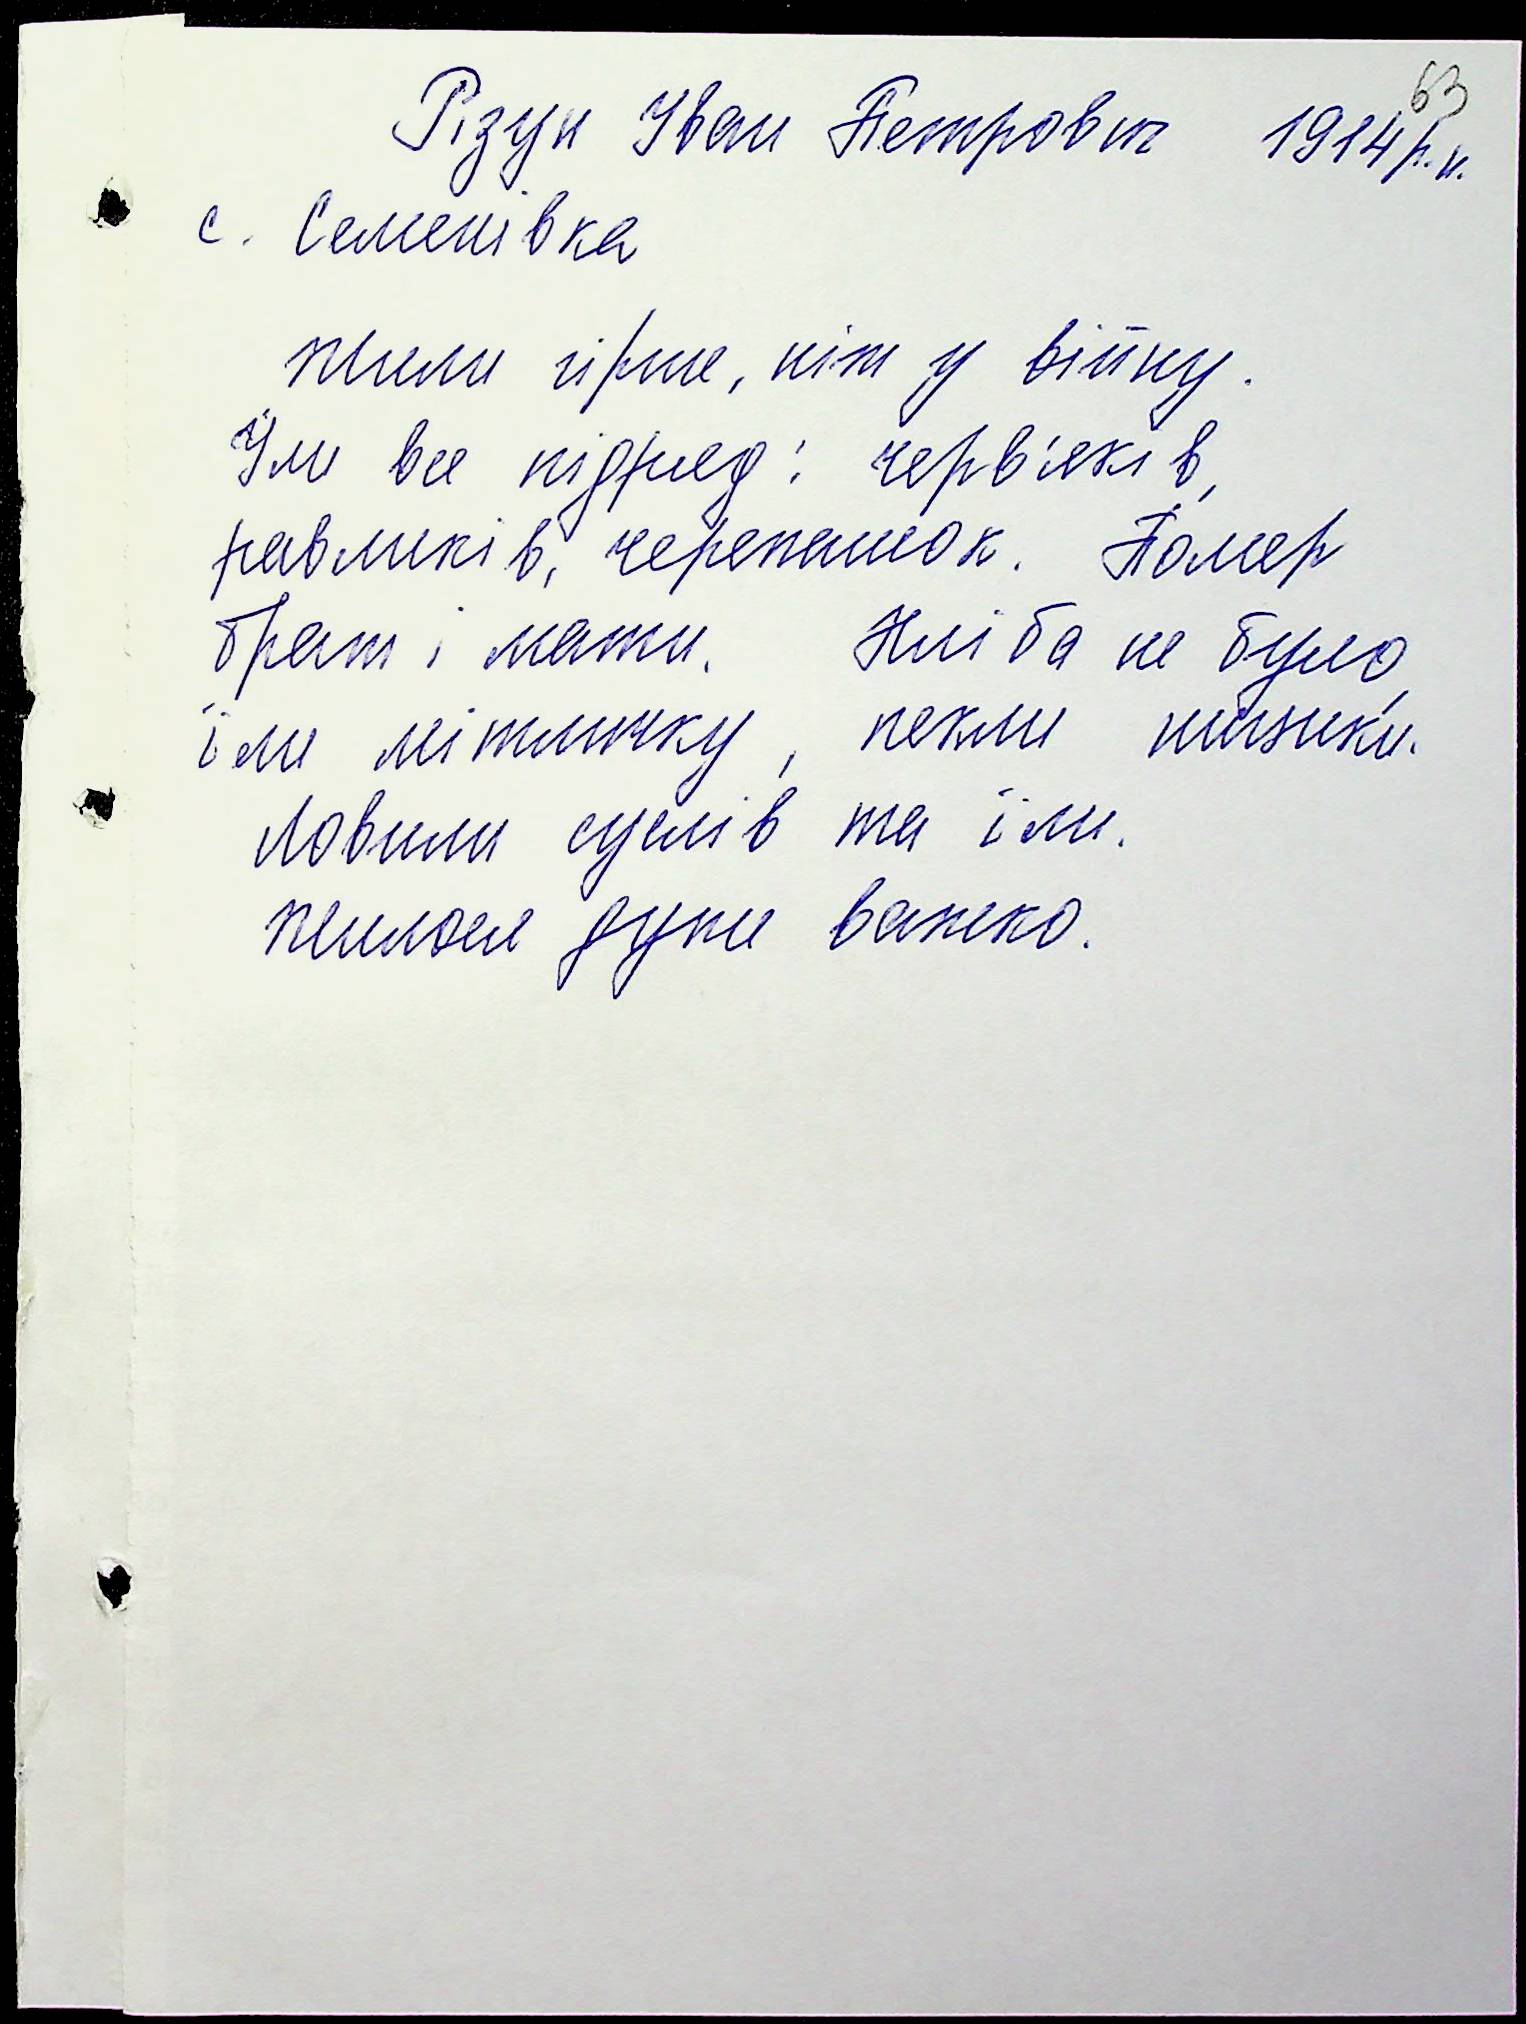 63
Різун Іван Петрович 1914 р.н.
с. Семенівка
Жили гірше, ніж у війну.
Їли все підряд: черв'яків,
равликів, черепашок. Помер
брат і мати. Хліба не було,
їли мітличку, пекли
Ловили суслів та їли.
Жилося дуже важко.